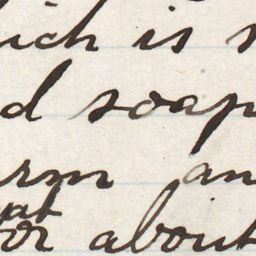 ich is
d soap
rm an
at
or about